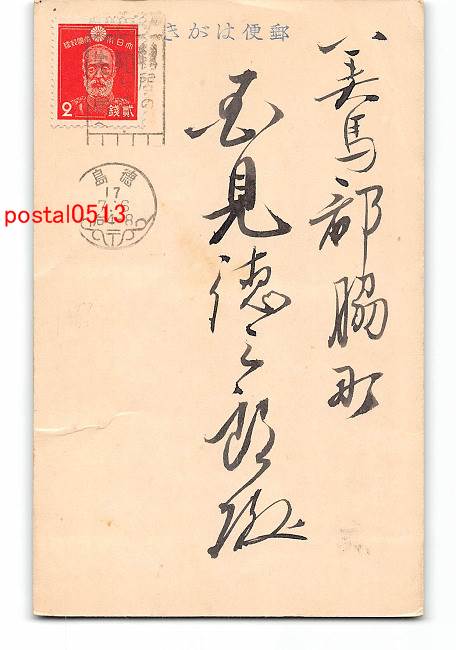 郵便はがき
大日本帝國郵便
2
銭
貳
徳島
17
postal0513
美馬郡脇町
玉見徳三郎殿